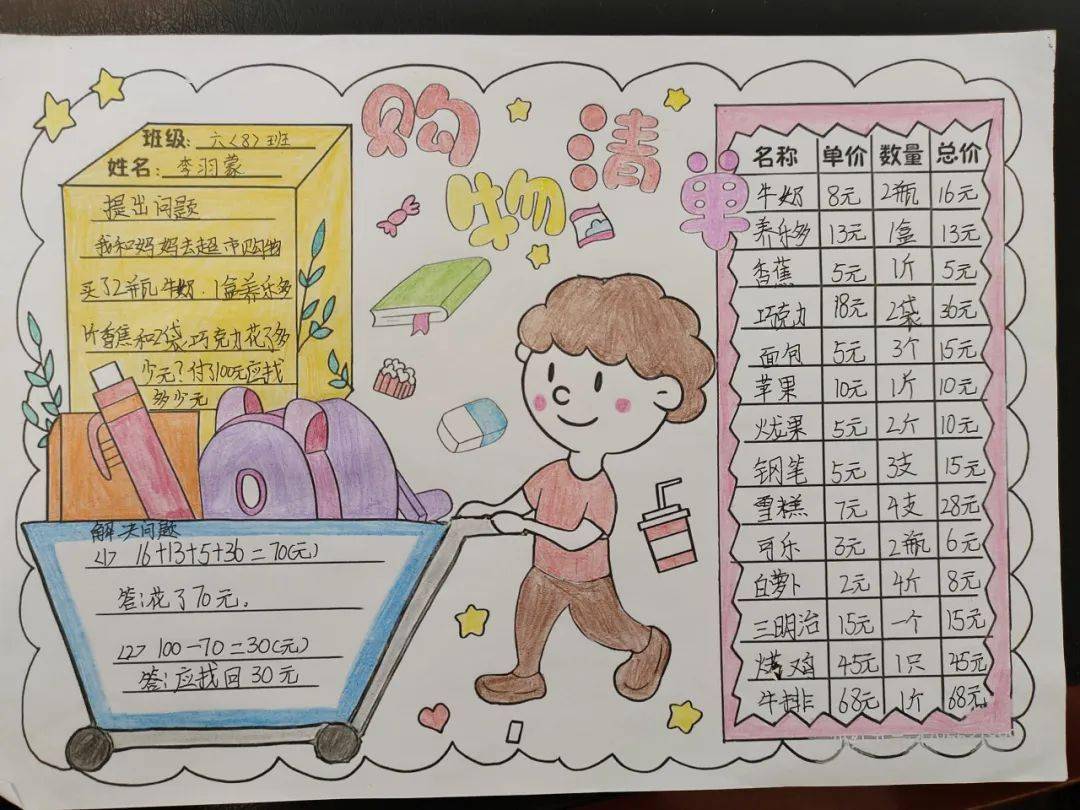 购物清单
班级: 六〈8〉班
姓名: 李羽蒙
提出问题
我和妈妈去超市购物
买了2瓶牛奶.1盒养乐多
1斤香蕉和2袋巧克力花了多
少元?付了100元应找
多少元
解决问题
〈1〉 16+13+5+36=70(元)
答:花了70元.
〈2〉 100-70=30(元)
答:应找回30元
名称 单价 数量 总价
牛奶 8元 2瓶 16元
养乐多 13元 1盒 13元
香蕉 5元 1斤 5元
巧克力 18元 2袋 36元
面包 5元 3个 15元
苹果 10元 1斤 10元
火龙果 5元 2斤 10元
钢笔 5元 3支 15元
雪糕 7元 4支 28元
可乐 3元 2瓶 6元
白萝卜 2元 4斤 8元
三明治 15元 一个 15元
烤鸡 45元 1只 45元
牛排 68元 1斤 68元